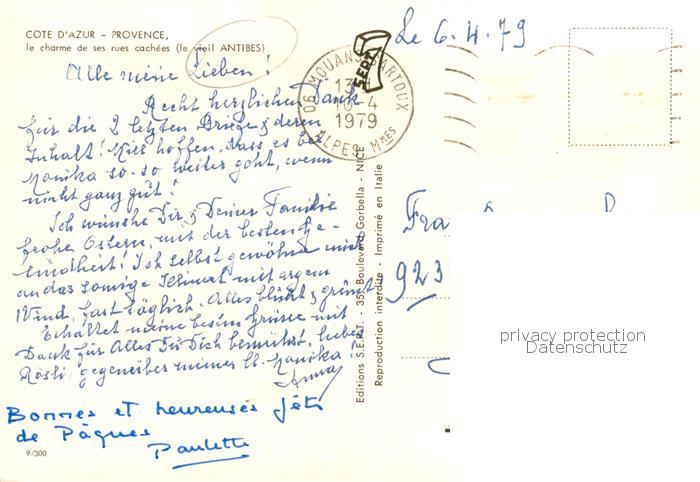 COTE D'AZUR - PROVENCE,
le charme de ses rues cachées (le vieil ANTIBES)
Le 6.4.79
Alle meine Lieben!
Recht herzlichen Dank
für die 2 letzten Briefe & deren
Inhalt! Will hoffen, dass es bei
Monika so-so weiter geht, wenn
nicht ganz gut!
Ich wünsche Dir & Deiner Familie
frohe Ostern, mit der besten Ge-
sundheit! Ich selbst gewöhne mich
an das sonnige Klima mit argem
Wind, fast täglich. Alles blüht & grünt
Erhaltet meine besten Grüsse mit
Dank für Alles Du Dich bemühst, liebes
Rösli, gegenüber meiner lb. Monika
Anna
Bonnes et heureuses fêtes
de Pâques
Paulette
9/300
06 MOUANS SARTOUX
13
10-4
1979
ALPES Mmes
SERT
Editions S.E.R.T. - 355 Boulevard Gorbella - NICE
Reproduction interdite - Imprimé en Italie
923
privacy protection
Datenschutz